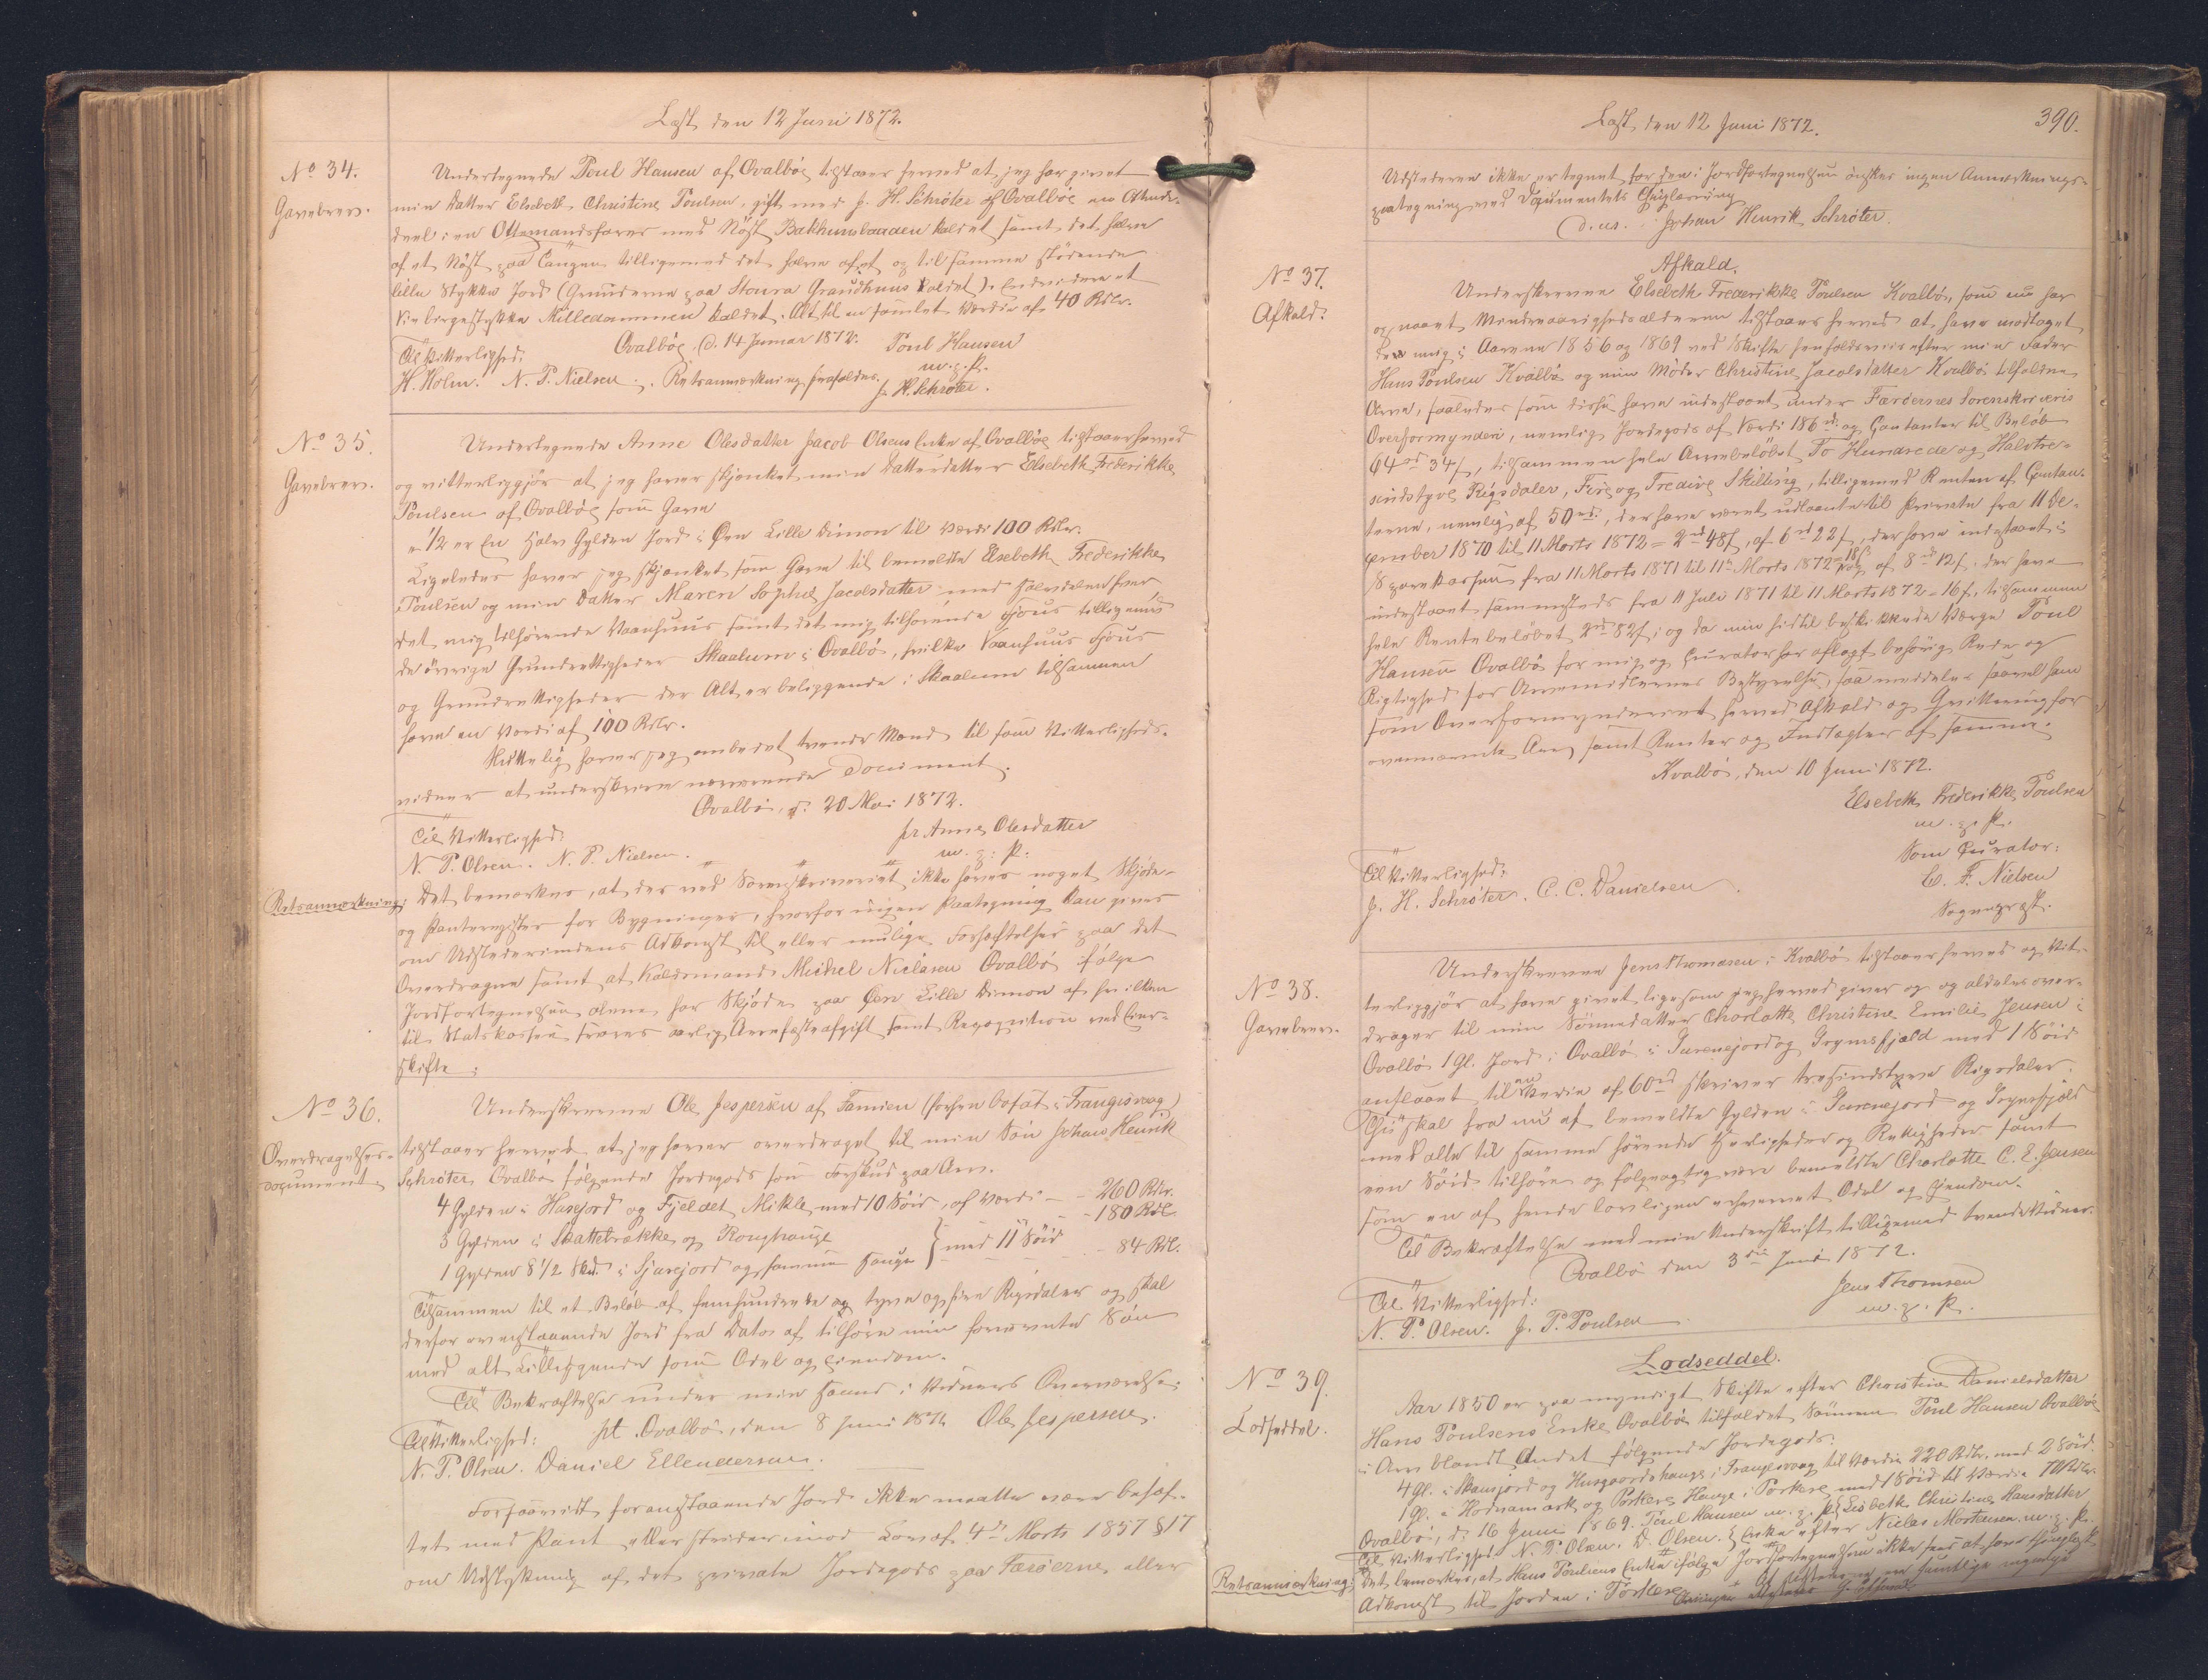 Læst den 12 Juni 1872.
No 34.
Gavebrev.
Undertegnede Poul Hansen af Qvalbøe tilstaaer herved at jeg har givet
min Datter Elsebeth Christine Poulsen, gift med J. H. Schrøter af Qvalbøe en Ottende-
deel i en Ottemandsfarer med Nøst, Bakkhuusbaaden kaldet samt det halve
af et Nøst paa Tangen tilligemed det halve af et og til samme stødende
lille Stykke Jord (Grunderne paa Stoura Graudhuus kaldet). Endvidere et
Kirkegaardstykke Milledammen kaldet. Alt til en samlet Værdie af 40 Rdlr.
Qvalbøe, d. 14 Januar 1872. Poul Hansen
Til Vitterlighed: m. f. P.
H. Holm. N. P. Nielsen. Retsanmærkning frafaldes.
J. H. Schrøter.
No 35.
Gavebrev.
Undertegnede Anne Olesdatter Jacob Olsens Enke af Qvalbøe tilstaaer herved
og vitterliggjør at jeg haver skjænket min Datterdatter Elsebeth Frederikke
Poulsen af Qvalbøe som Gave
1/2 er En halv Gylden Jord i Øen Lille Dimon til Værdi 100 Rdlr.
Ligeledes haver jeg skjænket som Gave til bemeldte Elsebeth Frederikke
Poulsen og min Datter Maren Sophie Jacobsdatter med Halvdelen hver
det mig tilhørende Vaanhuus samt det mig tilhørende Hjous tilligemed
de øvrige Grundrettigheder Skaalum i Qvalbø, hvilke Vaanhuus Hjous
og Grundrettigheder der Alt er beliggende i Skaalum tilsammen
have en Værdi af 100 Rdlr.
haver jeg ombedet tvende Mænd til som Vitterligheds-
vidner at underskrive nærværende Document.
Qvalbø, d. 20 Mai 1872.
Til Vitterlighed:
pr Anne Olesdatter
N. P. Olsen. N. P. Nielsen. m. f: P:
Retsanmærkning:
Det bemærkes, at der ved Sorenskriveriet ikke haves noget Skjøde-
og Panteregister for Bygninger, hvorfor ingen Paategning kan gives
om Udstederindens Adkomst til eller mulige Forhæftelser paa det
Overdragne samt at Kaldsmand Michel Niclasen Qvalbø ifølge
Jordfortegnelsen alene har Skjøde paa Øen Lille Dimon af hvilken
til Statskassen svares aarlig Arvefæsteafgift samt Recognition ved Eier-
skifte.
No 36.
Overdragelses-
document
Underskrevne Ole Jespersen af Famien (forhen bosat i Frangisvaag)
tilstaaer herved at jeg haver overdraget til min Søn Johan Henrik
Schrøter Qvalbø følgende Jordegods som Forskud paa Arv.
4 Gylden i Husejord og Fjeldet Mikle, med 10 Søid, af Værdi - 260 Rdlr.
3 Gylden i Skattebrække og Ronghauge - 180 Rdl.
1 Gylden 8 1/2 Skd. i Sjarejord og samme Hauge } med 11 Søid - 84 Rdl.
Tilsammen til et Beløb af femhundrede og tyve og fire Rigsdaler og skal
derfor ovenstaaende Jord fra Dato af tilhøre min fornævnte Søn
med alt Tilliggende som Odel og Eiendom.
Til Bekræftelse under min Haand i Vidners Overværelse.
pt. Qvalbø, den 8 Juni 1872 Ole Jespersen.
Til Vitterlighed:
N. P. Olsen. Daniel Ellendersen.
Forsaavidt foranstaaende Jord ikke maatte være behæf-
tet med Pant eller strider imod Lov af 4de Marts 1857 § 17
om Udstykning af det private Jordegods paa Færøerne, eller
Læst den 12 Juni 1872.
390.
Udstederen ikke er tegnet for den i Jordfortegnelsen ønskes ingen Anmærknings-
paategning ved Documentets Thinglæsning
D. u. s. Johan Henrik Schrøter.
No 37.
Afkald.
Afkald.
Underskrevne Elsebeth Frederikke Poulsen Kvalbø, som nu har
opnaaet Mindreaarighedsalderen tilstaaer herved at have modtaget
den mig i Aarene 1856 og 1869 ved Skifte henholdsviis efter min Fader
Hans Poulsen Kvalbø og min Moder Christine Jacobsdatter Kvalbø tilfaldne
Arve, saaledes som disse have indestaaet under Færøernes Sorenskriveris
Overformynderi, nemlig Jordegods af Værdi 186 rd. og Contanter til Beløb
64 rd 34 s, tilsammen hele Arvebeløbet To Hundrede og Halvtre-
sindstyve Rigsdaler, Fire og Tredive Skilling, tilligemed Renten af Contan-
terne, nemlig af 50 rd., der have været udlaante til Private fra 11 De-
cember 1870 til 11 Marts 1872 = 2 rd 48 s, af 6 rd 22 s, der have indestaaet i
Sparekassen fra 11 Marts 1871 til 11te Marts 1872 = 18 s og af 8 rd 12 s, der have
indestaaet sammesteds fra 11 Juli 1871 til 11 Marts 1872 = 16 s, tilsammen
hele Rentebeløbet 2 rd 82 s; og da min hidtil beskikkede Værge Poul
Hansen Qvalbø for mig og Curator har aflagt behørig Rede og
Rigtighed for Arvemidlernes Bestyrelse, saa meddeles saavel ham
som Overformynderiet herved Afkald og Qvittering for
ovennævnte Arv samt Renter og Indtægter af samme.
Kvalbø, den 10 Juni 1872.
Elsebeth Frederikke Poulsen
m. f. P.
Som Curator:
Til Vitterlighed:
J. H. Schrøter. C. C. Danielsen.
C. F. Nielsen
Sognepræst.
No 38.
Gavebrev.
Underskrevne Jens Thomasen i Kvalbø tilstaaer herved og vit-
terliggjør at have givet ligesom jeg herved giver og og aldeles over-
drager til min Sønnedatter Charlotte Christine Emilie Jensen i
Qvalbø 1 Gl. Jord i Qvalbø i Gurenejord og Grymsfjæld med 1 Søid
anslaaet til en Værdie af 60 rd skriver tresindstyve Rigsdaler.
Thi skal fra nu af bemeldte Gylden i Gurenejord og Grymsfjæld
med alle til samme hørende Herligheder og Rettigheder samt
een Søid tilhøre og følgagtig være bemeldte Charlotte C. E. Jensen
som en af hende lovligen erhvervet Odel og Eiendom.
Til Bekræftelse med min Underskrift tilligemed tvende Vidner.
Qvalbø den 3die Juni 1872.
Til Vitterlighed:
Jens Thomsen
N. P. Olsen. J. P. Poulsen m. f. P.
No 39.
Lodseddel.
Lodseddel.
Aar 1850 er paa myndigt Skifte efter Christine Danielsdatter
Hans Poulsens Enke Qvalbøe tilfaldet Sønnen Poul Hansen Qvalbøe
i Arv blandt Andet følgende Jordegods:
4 Gl. i Skansjord og Husgaardshauge i Frangisvaag til Værdie 220 Rdlr. med 2 Søid.
1 Gl. i Hodnamark og Porkere Hauge i Porkere med 1 Søid til Værdie 70 Rdlr.
Qvalbø, d. 16 Juni 1869. Poul Hansen m. f. P. { Lisbeth Christine Hansdatter
Til Vitterlighed: N. P. Olsen. D. Olsen. { Enke efter Niclas Mortensen. m. f. P.
Retsanmærkning:
Det bemærkes, at Hans Poulsens Enke ifølge Jordfortegnelsen ikke sees at have thinglæst
Adkomst til Jorden i Porkere.